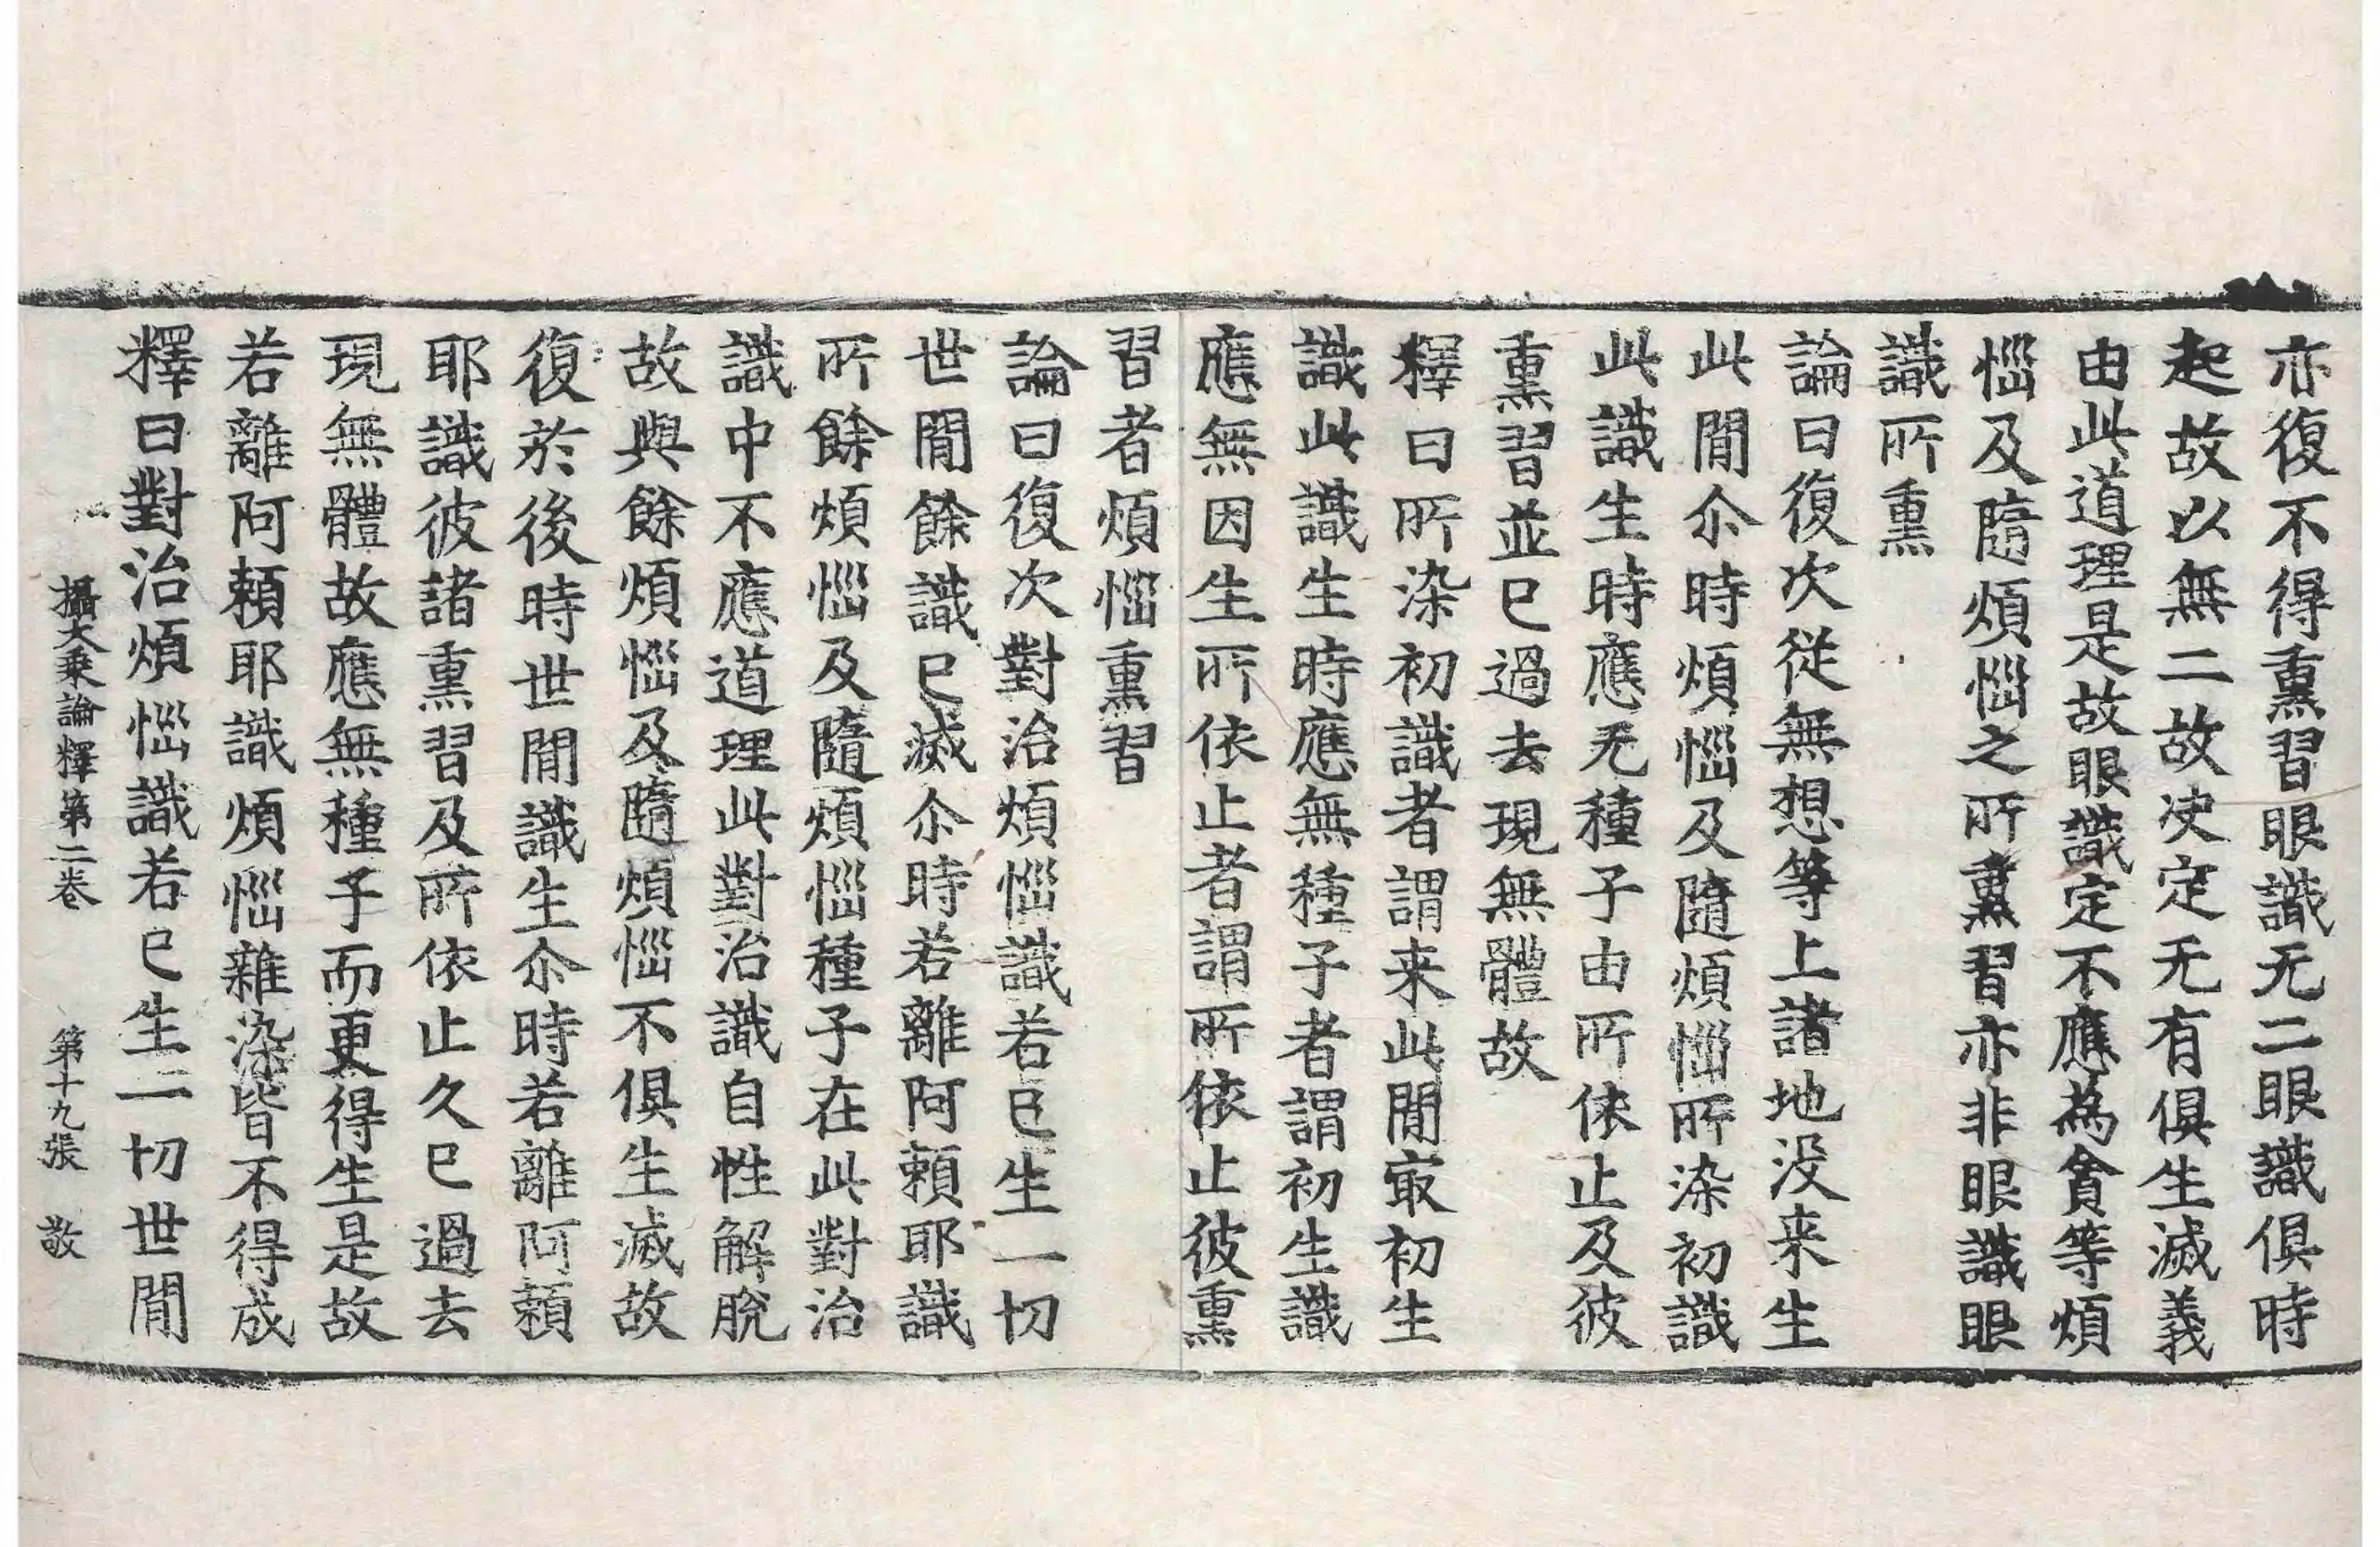 亦復不得熏習眼識无二眼識俱時
起故以無二故决定无有俱生滅義
由此道理是故眼識定不應為貪等煩
惱及隨煩惱之所熏習亦非眼識眼
識所熏
論曰復次從無想等上諸地没来生
此閒尒時煩惱及隨煩惱所染初識
此識生時應无種子由所依止及彼
熏習並已過去現無體故
釋曰所染初識者謂来此閒㝡初生
識此識生時應無種子者謂初生識
應無因生所依止者謂所依止彼熏
習者煩惱熏習
論曰復次對治煩惱識若已生一切
世閒餘識已滅尒時若離阿賴耶識
所餘煩惱及隨煩惱種子在此對治
識中不應道理此對治識自性解脫
故與餘煩惱及隨煩惱不俱生滅故
復於後時世閒識生尒時若離阿賴
耶識彼諸熏習及所依止久已過去
現無體故應無種子而更得生是故
若離阿賴耶識煩惱雜染皆不得成
釋曰對治煩惱識若已生一切世閒
攝大乘論釋第二卷 第十九張 敬